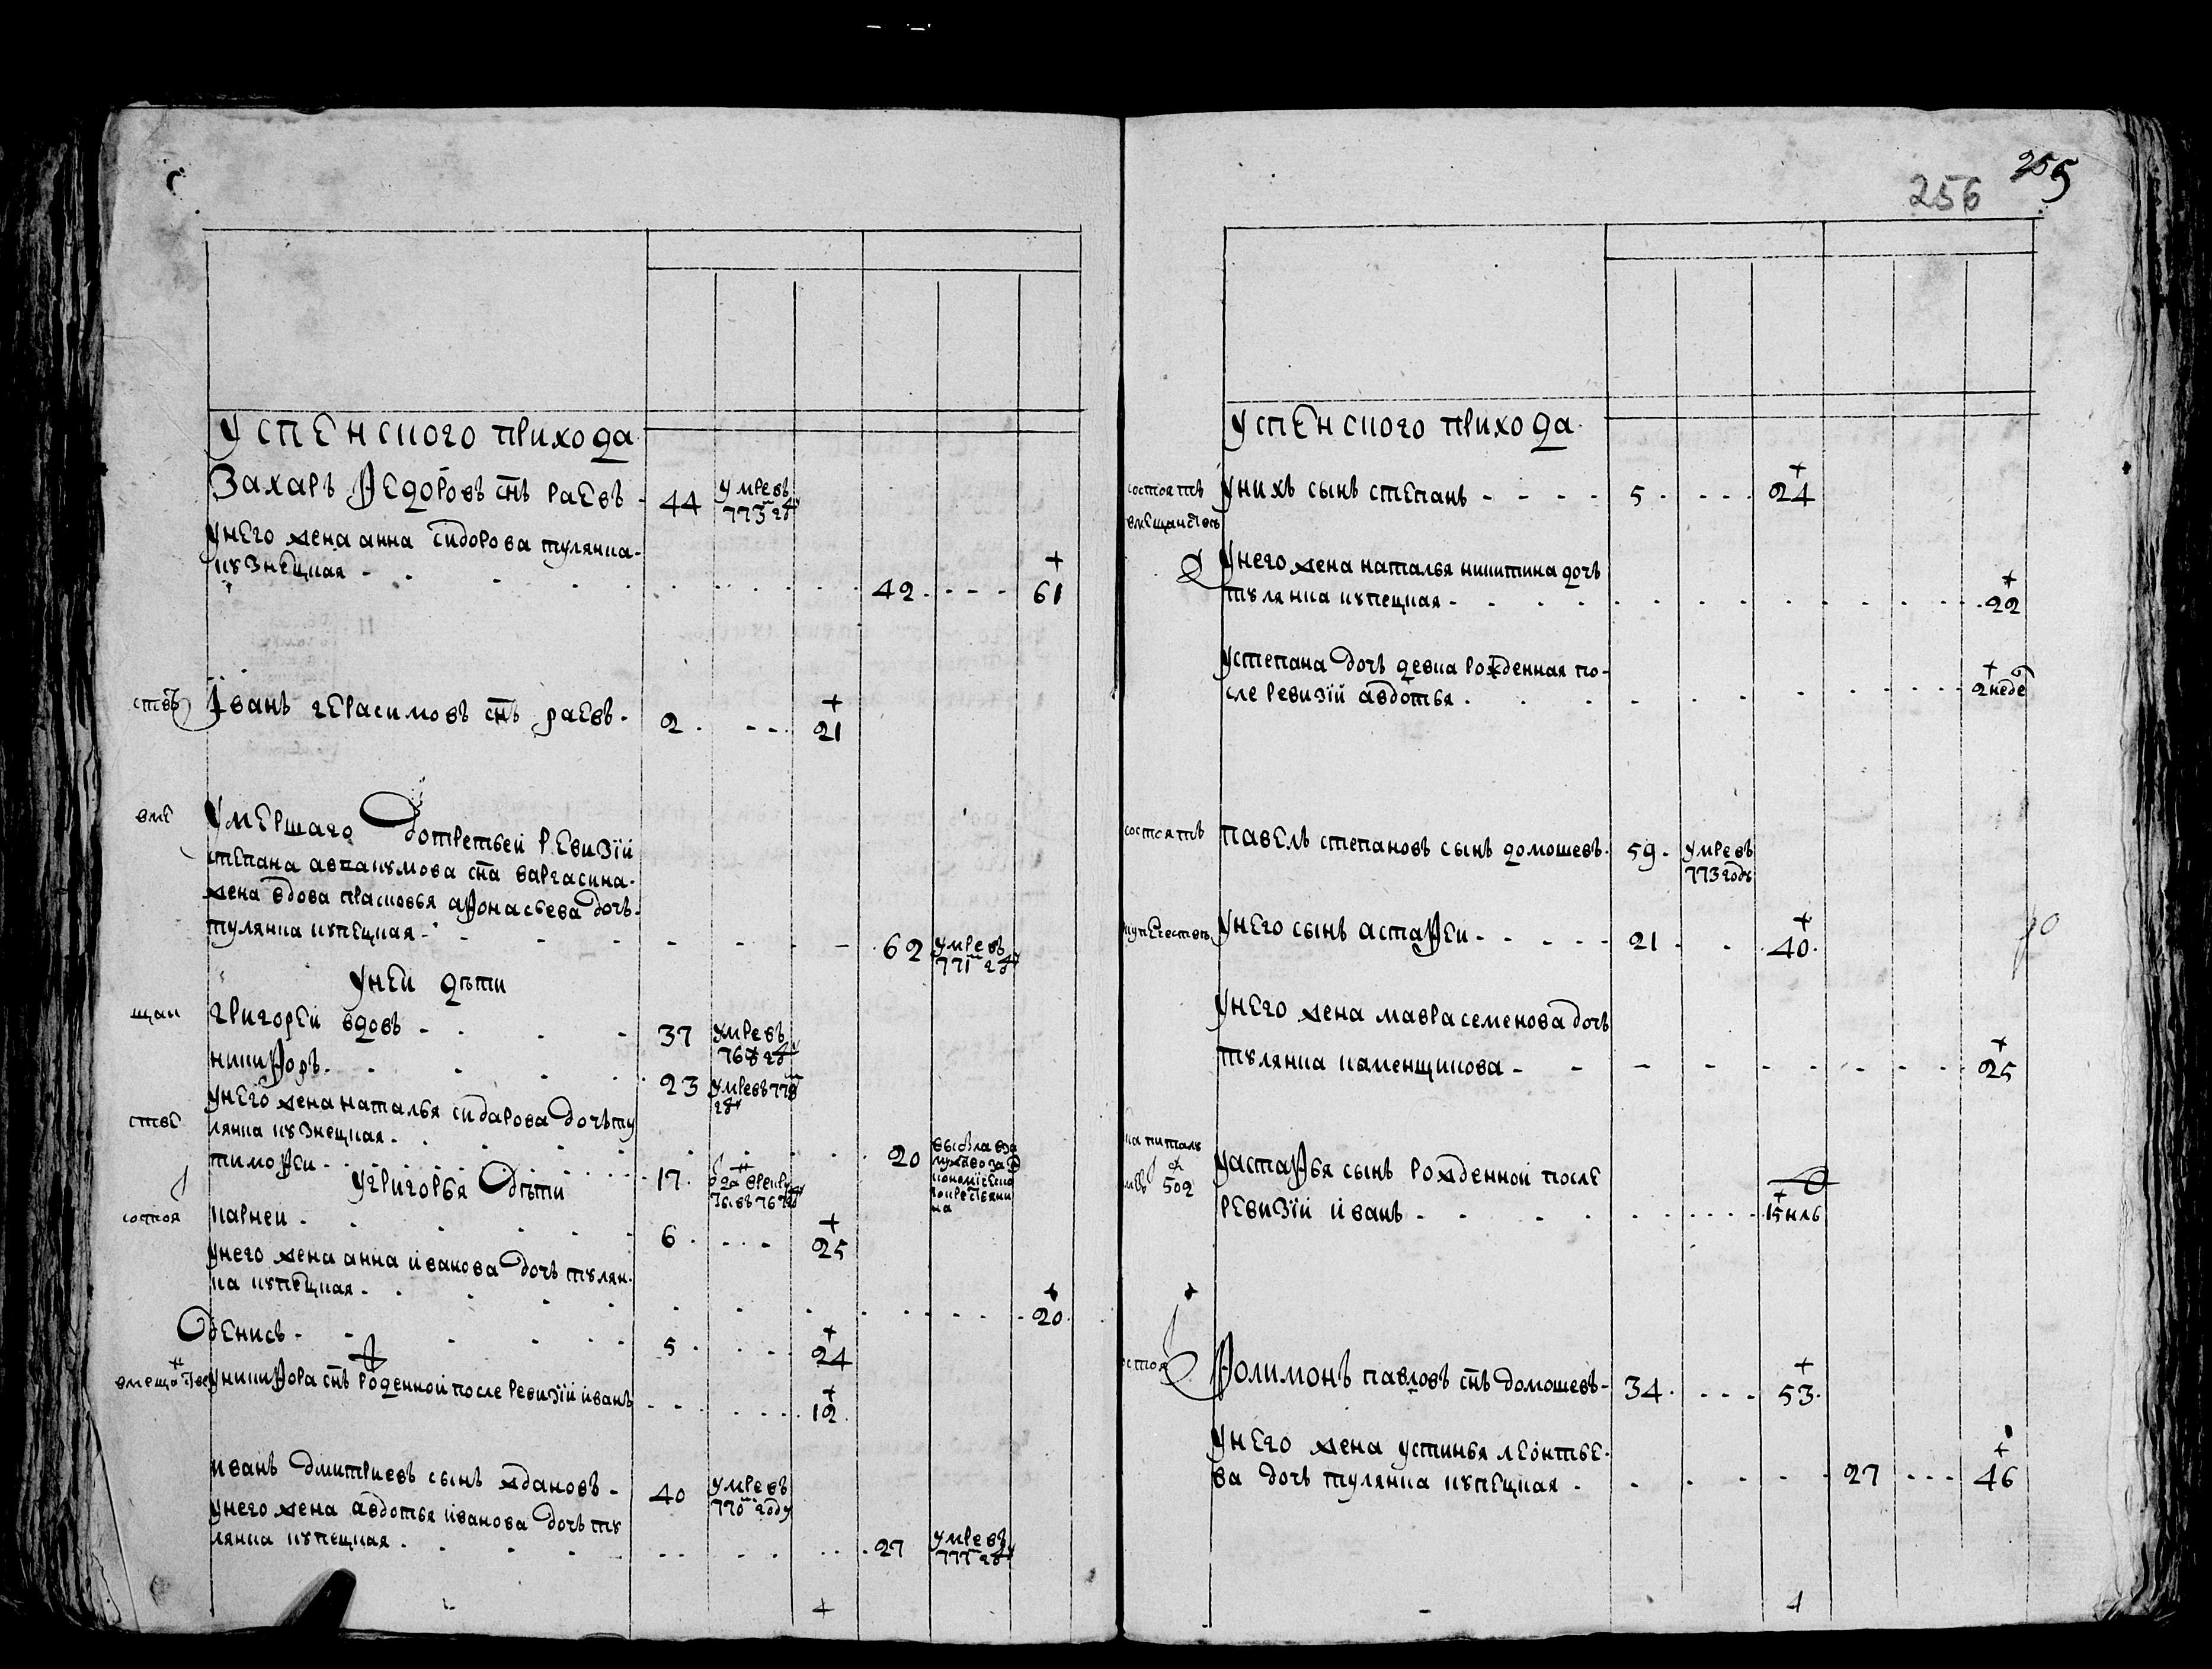 Успенского прихода
Захаръ Федоровъ снъ раевъ - 44 умре въ
773 году
у него жена анна сидорова тулянка
кузнецкая - 42 - - - 61
ствѣ Іванъ герасимовъ снъ раевъ - 2 - - - 21
вме Умершаго до третьей ревизiй
степана аввакумова сна варгасина
жена вдова прасковья афонасьева дочь
тулянка купецкая - 62 умре въ
771 году
у ней дѣти
щан григорей вдовъ - 37 умре въ
768 году
никифоръ - 23 умре въ 778
году
у него жена наталья сидарова дочь ту
стве лянка кузнецкая - 20
тимофеи - 17
у григорья дѣти
состоя карнеи - 6 - - - 25
у него жена анна иванова дочь тулян
ка купецкая - 20
денисъ - 5 - - - 24
вмещанстве у никифора снъ роденной после ревизiй иванъ - 12
иванъ дмитриевъ сынъ ждановъ - 40 умре въ
770 году
у него жена авдотья иванова дочь ту
лянка купецкая - 27 умре въ
777 году
4
255
256
Успенского прихода
состоятъ у нихъ сынъ степанъ - - - - 5 - - - 24
вмещанствѣ
у него жена наталья никитина дочь
тулянка купецкая - 22
у степана дочь девка рожденная по-
сле ревизiй авдотья - 2 неде
состоятъ павелъ степановъ сынъ домошевъ - 59 - умре въ
773 году
купечествѣ у него сынъ астафеи - - - - - 21 - - 40
у него жена мавра семенова дочь
тулянка каменщикова - 25
капиталъ
502 у астафья сынъ рожденной после
ревизiй иванъ - 15 нль
остоя Фолимонъ павловъ снъ домошевъ - 34 - - - 53
у него жена устинья леонтье-
ва дочь тулянка купецкая - 27 - - - 46
4